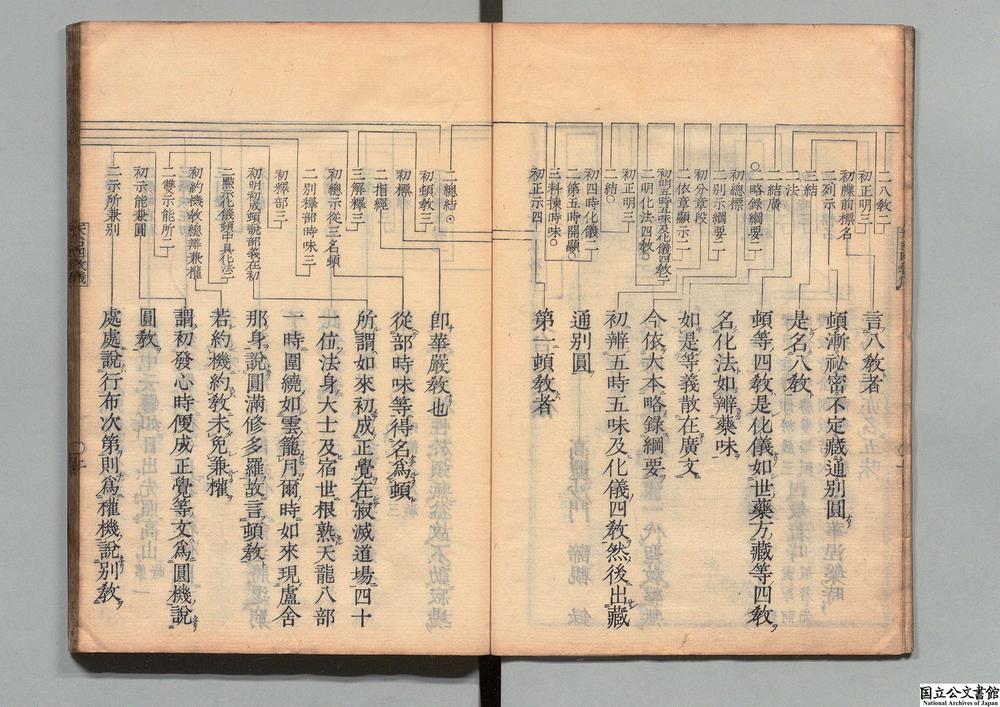 二八教二
初正明三
初牒前標名
二列示
三結
二法
二結廣
○二略録綱要二
初總標
二別示綱要二
初分章段
二依章顯示二
初明五時五味及化儀四教二
二明化法四教○
初正明二
二結○
初四時化儀二
二第五時開顯○
三料揀時味○
初正示四
言八教者
頓漸祕密不定藏通別圓
是名八教
頓等四教是化儀如世藥方藏等四教
名化法如辨藥味
如是等義散在廣文
今依大本略録綱要
初辨五時五味及化儀四教然後出藏
通別圓
第一頓教者
二總結○
初頓教三
初標
二指經
三解釋二
初總示從三名頓
二別釋部時味三
初釋部二
初明初成頓說部義在初
二點示化儀頓中具化法二
初約機教總辨兼權
二雙示能所二
初示能兼圓
二示所兼別
即華嚴教也
從部時味等得名爲頓
所謂如來初成正覺在寂滅道場四十
一位法身大士及宿世根熟天龍八部
一時圍繞如雲籠月爾時如來現盧舍
那身說圓滿修多羅故言頓教
若約機約教未免兼權
謂初發心時便成正覺等文爲圓機說
圓教
處處說行布次第則爲權機說別教
国立公文書館
National Archives of Japan